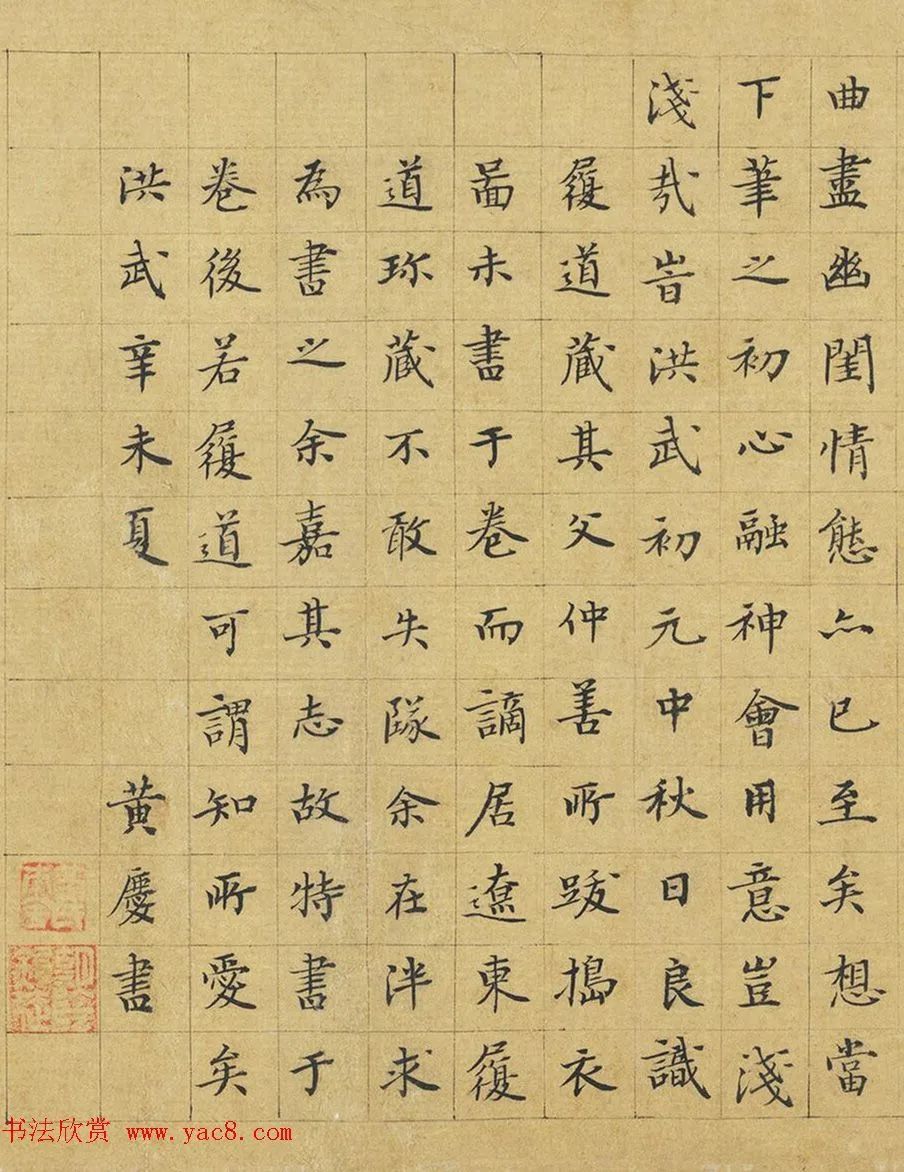 曲盡幽閨情態亦已至矣想當
下筆之初心融神會用意豈淺
淺㢤旹洪武初元中秋日良識
履道藏其父仲善所跋搗衣
啚未書于卷而謫居遼東履
道珎藏不敢失隊余在泮求
為書之余嘉其志故特書于
卷後若履道可謂知所愛矣
洪武辛未夏 黃慶書
书法欣赏 www.yac8.com